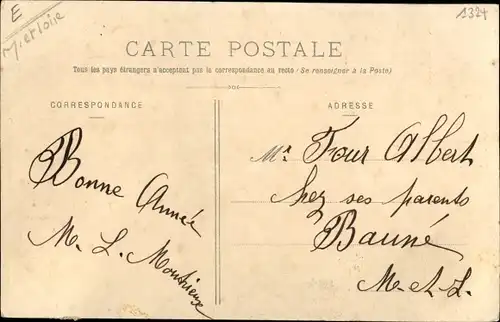 E
M. et Loire
1324
CARTE POSTALE
Tous les pays étrangers n'acceptent pas la correspondance au recto (Se renseigner à la Poste)
CORRESPONDANCE
ADRESSE
Bonne Année
M. L.
Mr Four Albert
chez ses parents
Bauné
M.-et-L.